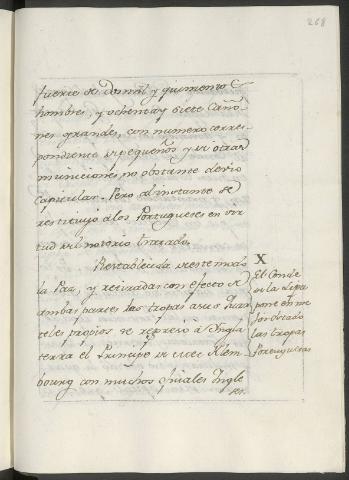 268
fuerte de Dosmil y quinientos
hombres, y ochenta y siete Caño-
nes grandes, con numero corres-
pondiente de pequeños y de otras
municiones, no obstante devio
Capitular. Pero al instante se
restituyó a los Portugueses en vir
tud del notorio tratado.
Restablecida de este modo
la Paz, y retiradas con efecto de
ambas partes las tropas a sus Quar
teles propios se regresó a Ingla
terra el Principe de Meclem
bourg con muchos oficiales Ingle
ses.
X
El Conde
de la Lipa
pone en me
jor estado
las tropas
Portuguesas